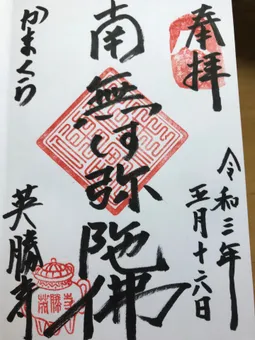 奉拝
令和三年
正月十六日
南無阿弥陀佛
かまくら
英勝寺
英勝寺